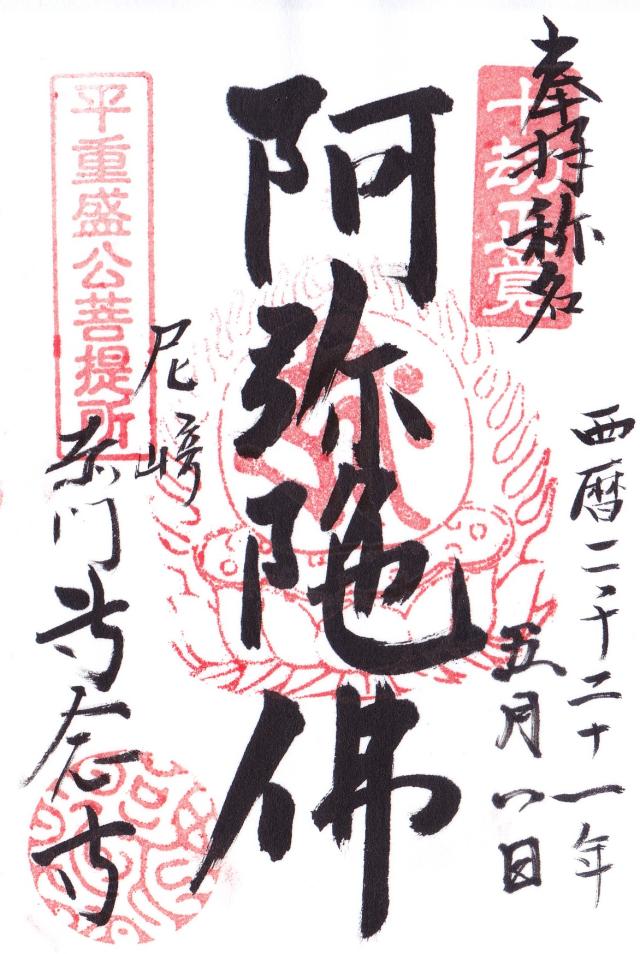 奉拝称名
十劫正覚
西暦二千二十一年
五月八日
阿弥陀佛
尼崎
平重盛公菩提所
専念寺